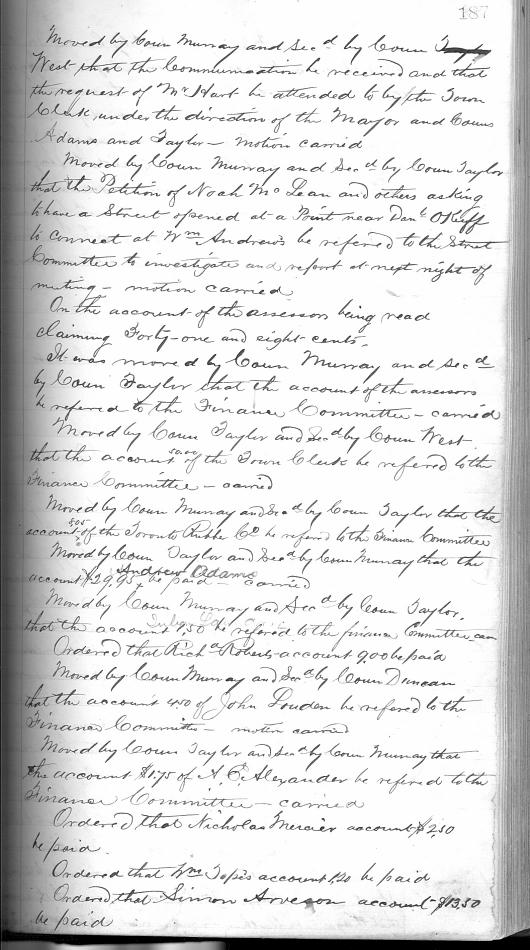 187
Moved by Coun Murray and Sec^d by Coun Taylor
West that the Communication be received and that
the request of Mr Hart be attended to by the Town
Clerk under the direction of the Mayor and Couns
Adams and Taylor – motion carried
Moved by Coun Murray and Sec^d by Coun Taylor
that the Petition of Noah McLean and others asking
to have a Street opened at a Point near Danl OKeff
to connect at Wm Andrews be referred to the Street
Committee to investigate and report at next night of
meeting – motion carried
On the account of the assessors being read
claiming Forty-one and eight cents.
It was moved by Coun Murray and Sec^d
by Coun Taylor that the account of the assessors
be referred to the Finance Committee – carried
Moved by Coun Taylor and Sec^d by Coun West
that the account 50.00 of the Town Clerk be refered to the
Finance Committee – carried
Moved by Coun Murray and Sec^d by Coun Taylor that the
account 805 of the Toronto Rubber Co be refered to the Finance Committee
Moved by Coun Taylor and Sec^d by Coun Murray that the
Andrew Adams
account $29,95 be paid – carried
Moved by Coun Murray and Sec^d by Coun Taylor.
that the account 1,50 be refered to the finance Committee
Ordered that Rich^d Roberts account 9,00 be paid
Moved by Coun Murray and Sec^d by Coun Duncan
that the account 4.50 of John Louden be refered to the
Finance Committe – motion carried
Moved by Coun Taylor and Sec^d by Coun Murray that
the account $1.75 of A. C. Alexander be refered to the
Finance Committee – carried
Ordered that Nicholas Mercier account $2,50
be paid.
Ordered that Wm Topes account 1,20 be paid
Ordered that Simon Arveson account $13.50
be paid